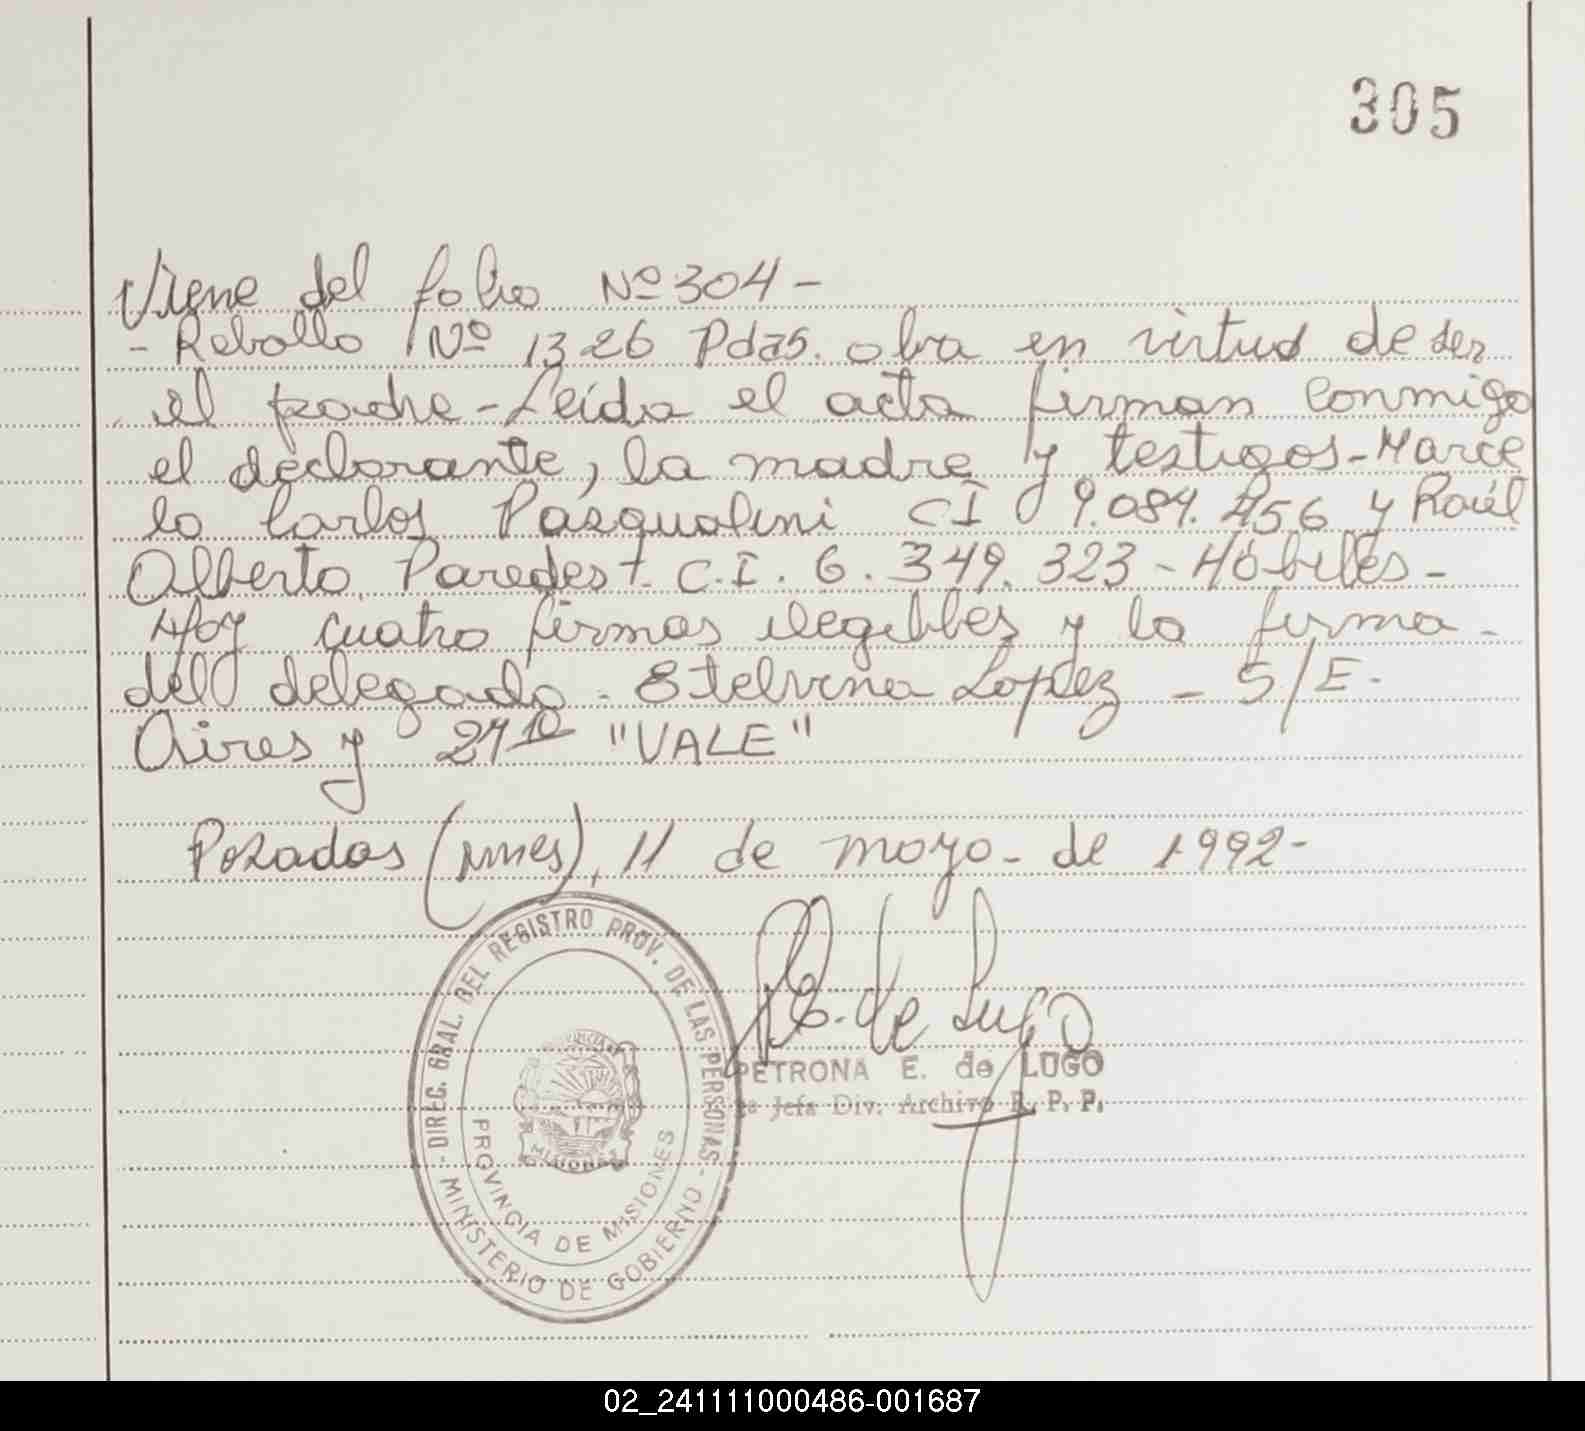 305
Viene del folio Nº 304-
- Rebollo Nº 1326 Pdas. obra en virtud de ser
el padre-Leída el acta firman conmigo
el declarante, la madre y testigos-Marce
lo Carlos Pasqualini CI 9.084.456 y Raúl
Alberto Paredes - C.I. 6.349.323 - Hábiles-
Hay cuatro firmas ilegibles y la firma-
del delegado - Etelvina Lopez - S/E.
Aires y "VALE"
Posadas (Mnes), 11 de mayo- de 1992-
DIREC. GRAL. DEL REGISTRO PROV. DE LAS PERSONAS
MINISTERIO DE GOBIERNO
PROVINCIA DE MISIONES
MISIONES
P. E. de Lugo
PETRONA E. de LUGO
Jefa Div. Archivo R. P. P.
02_241111000486-001687